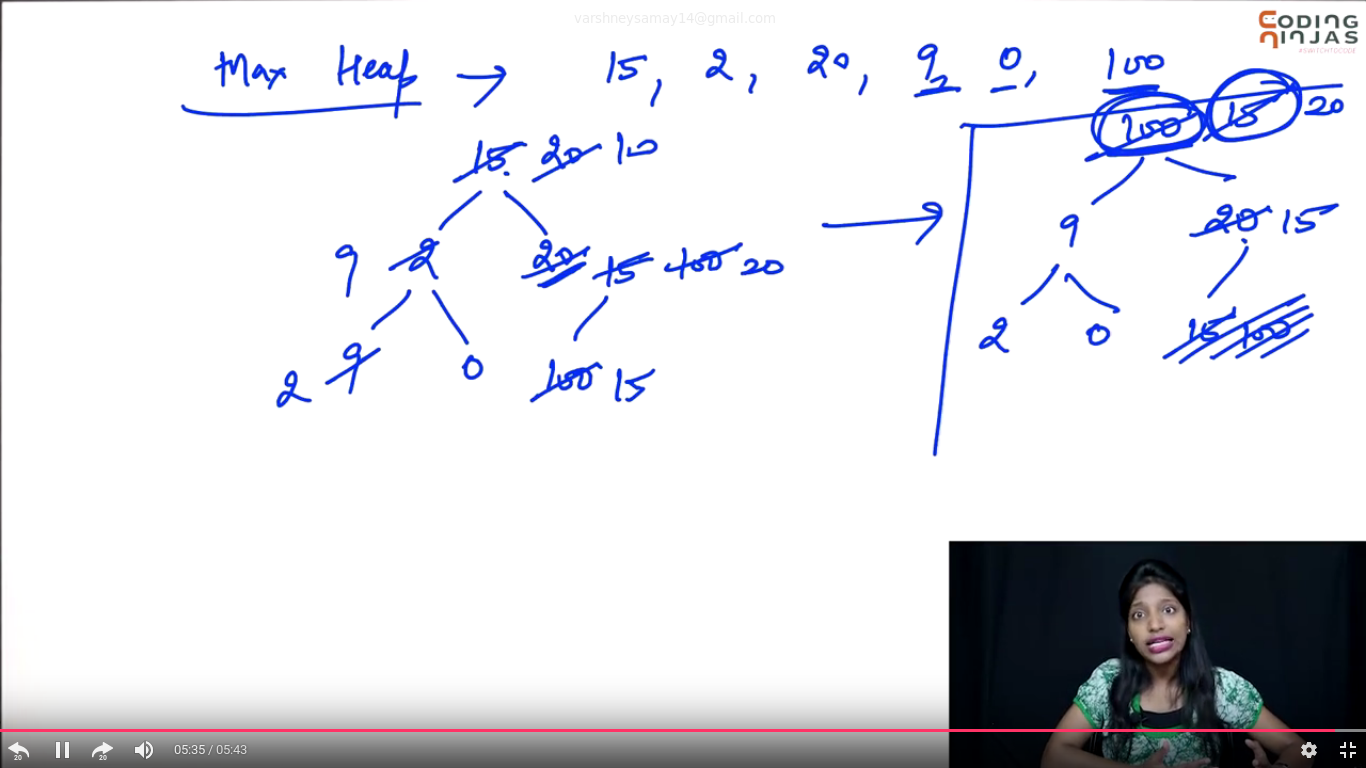 varshneysamay14@gmail.com
CODING
NINJAS
#SWITCHTOCODE
Max Heap → 15, 2, 20, 9, 0, 100
100 15 20
15 20 100
9 20 15
9 2 20 15 100 20
2 0 15 100
2 9 0 100 15
20 20 05:35 / 05:43